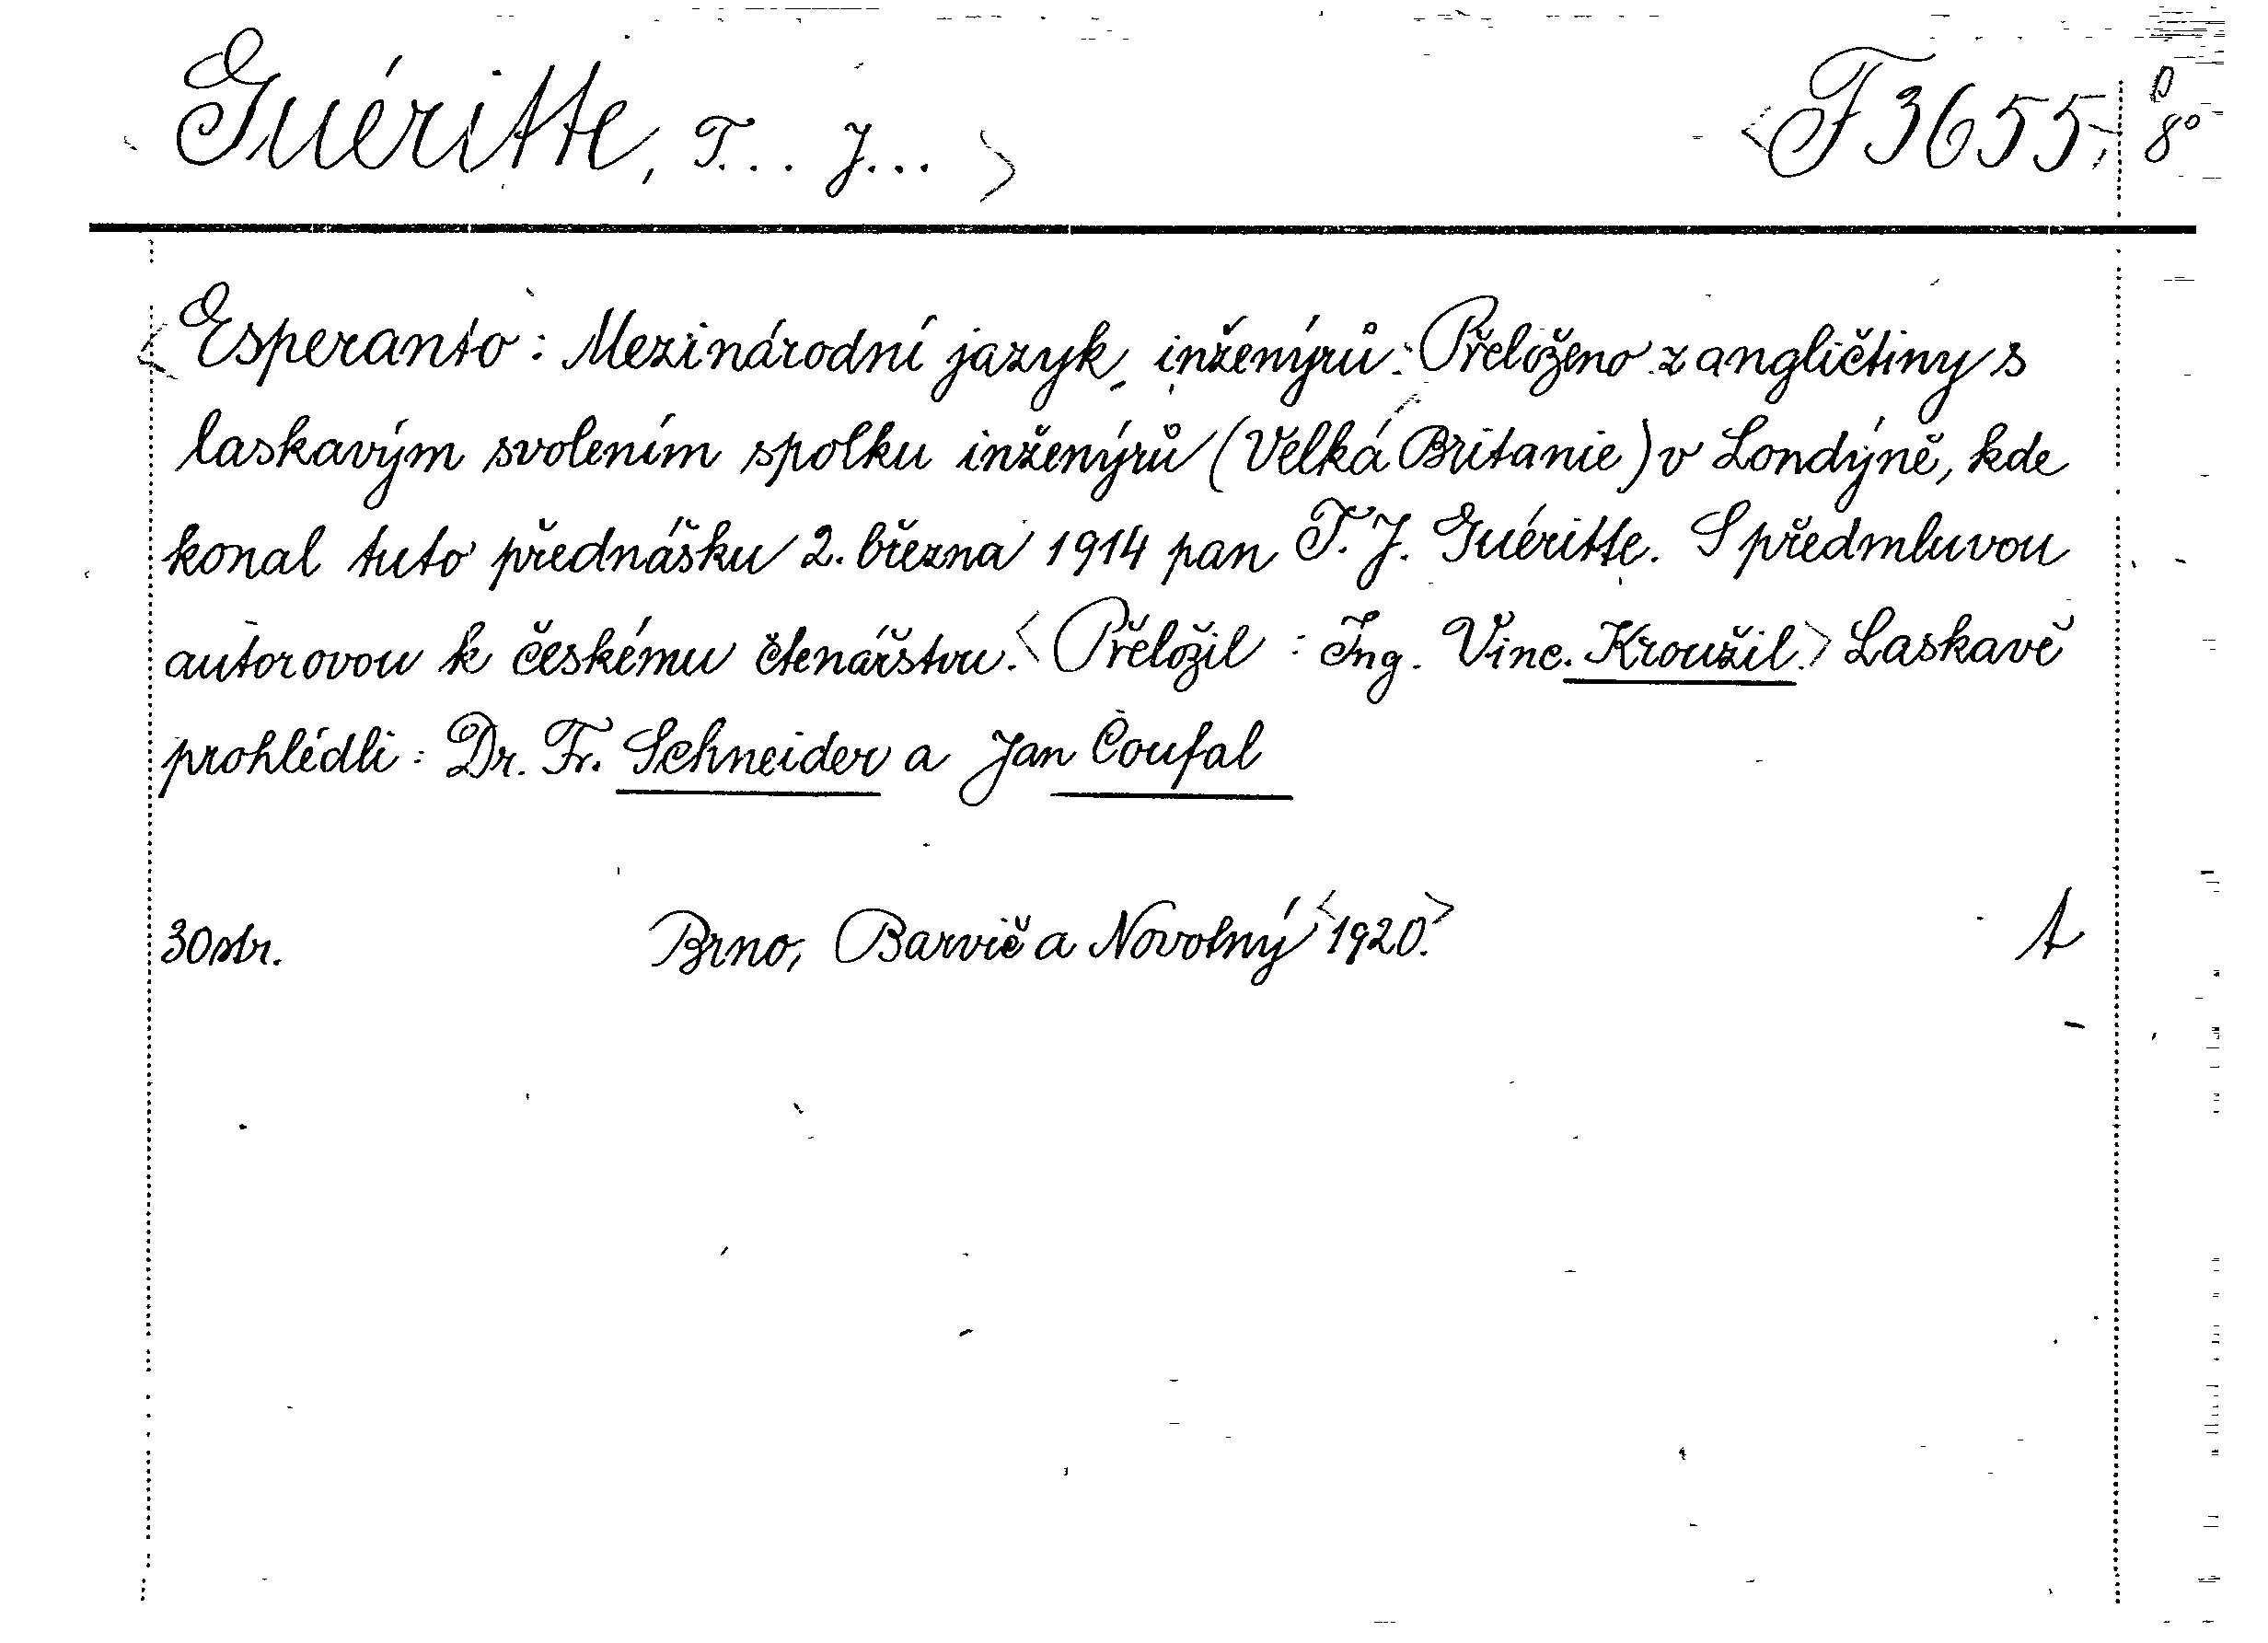 Guéritte, T... J... > <F 3655> 8°
<Esperanto: Mezinárodní jazyk inženýrů. Přeloženo z angličtiny s
laskavým svolením spolku inženýrů (Velká Britanie) v Londýně, kde
konal tuto přednášku 2. března 1914 pan T. J. Guéritte. S předmluvou
autorovou k českému čtenářstvu. <Přeložil: Ing. Vinc. Kroužil.> Laskavě
prohlédli: Dr. Fr. Schneider a Jan Čoufal
30 str. Brno, Barvič a Novotný <1920.>